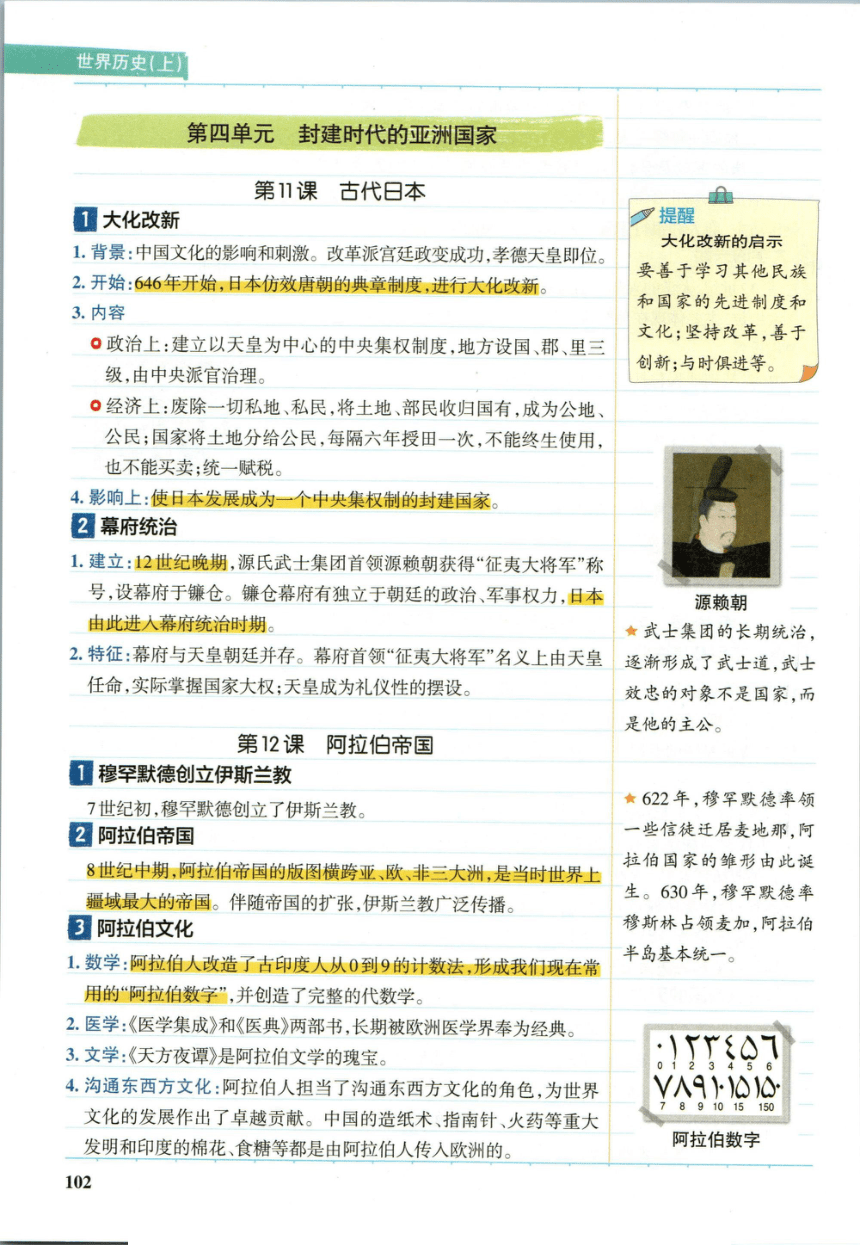 世界历史(上)
第四单元 封建时代的亚洲国家
第11课 古代日本
1 大化改新
1. 背景:中国文化的影响和刺激。改革派宫廷政变成功,孝德天皇即位。
2. 开始:646年开始,日本仿效唐朝的典章制度,进行大化改新。
3. 内容
政治上:建立以天皇为中心的中央集权制度,地方设国、郡、里三
级,由中央派官治理。
经济上:废除一切私地、私民,将土地、部民收归国有,成为公地、
公民;国家将土地分给公民,每隔六年授田一次,不能终生使用,
也不能买卖;统一赋税。
4. 影响上:使日本发展成为一个中央集权制的封建国家。
2 幕府统治
1. 建立:12世纪晚期,源氏武士集团首领源赖朝获得“征夷大将军”称
号,设幕府于镰仓。镰仓幕府有独立于朝廷的政治、军事权力,日本
由此进入幕府统治时期。
2. 特征:幕府与天皇朝廷并存。幕府首领“征夷大将军”名义上由天皇
任命,实际掌握国家大权;天皇成为礼仪性的摆设。
第12课 阿拉伯帝国
1 穆罕默德创立伊斯兰教
7世纪初,穆罕默德创立了伊斯兰教。
2 阿拉伯帝国
8世纪中期,阿拉伯帝国的版图横跨亚、欧、非三大洲,是当时世界上
疆域最大的帝国。伴随帝国的扩张,伊斯兰教广泛传播。
3 阿拉伯文化
1. 数学:阿拉伯人改造了古印度人从0到9的计数法,形成我们现在常
用的“阿拉伯数字”,并创造了完整的代数学。
2. 医学:《医学集成》和《医典》两部书,长期被欧洲医学界奉为经典。
3. 文学:《天方夜谭》是阿拉伯文学的瑰宝。
4. 沟通东西方文化:阿拉伯人担当了沟通东西方文化的角色,为世界
文化的发展作出了卓越贡献。中国的造纸术、指南针、火药等重大
发明和印度的棉花、食糖等都是由阿拉伯人传入欧洲的。
提醒
大化改新的启示
要善于学习其他民族
和国家的先进制度和
文化;坚持改革,善于
创新;与时俱进等。
源赖朝
★ 武士集团的长期统治,
逐渐形成了武士道,武士
效忠的对象不是国家,而
是他的主公。
★ 622年,穆罕默德率领
一些信徒迁居麦地那,阿
拉伯国家的雏形由此诞
生。630年,穆罕默德率
穆斯林占领麦加,阿拉伯
半岛基本统一。
٠ ١ ٢ ٣ ٤ ٥ ٦
0 1 2 3 4 5 6
٧ ٨ ٩ ١٠ ١٥ ١٥٠
7 8 9 10 15 150
阿拉伯数字
102